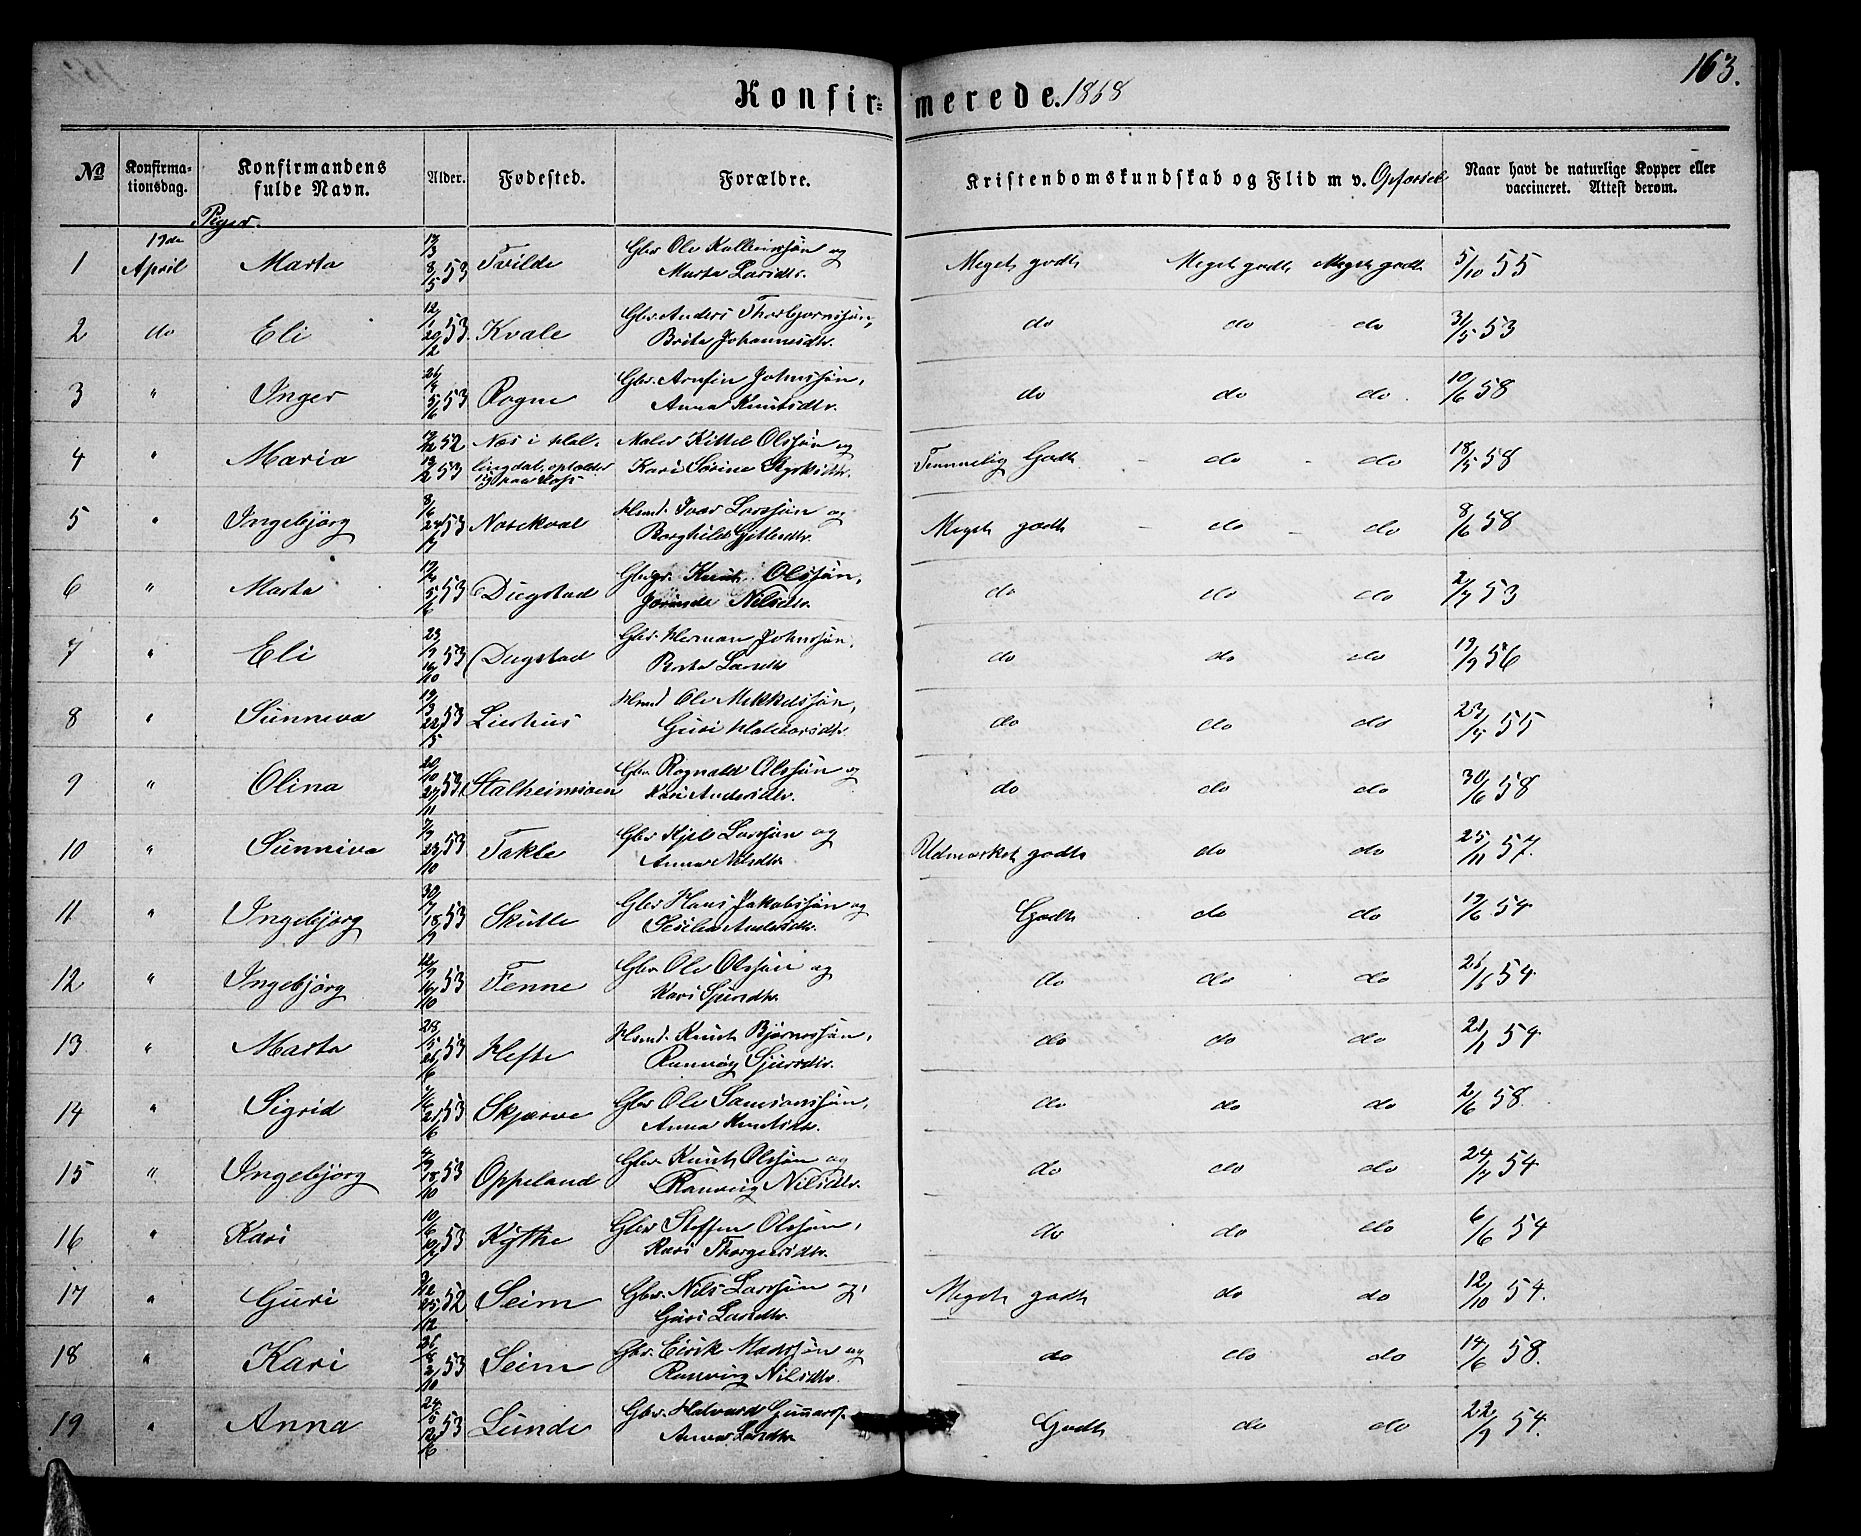 163.
Konfir= merede. 1868
№ Konfirma-tionsdag. Konfirmandens fulde Navn. Alder. Fødested. Forældre. Kristendomskundskab og Flid m v. Opførsel Naar havt de naturlige Kopper eller vaccineret. Attest derom.
Piger.
1 April Marta 53 Tvilde Gbr Ole og Marta Larsdtr. Meget godt Meget godt Meget godt 5/10 55
2 do Eli 53. Kvale Gbr. Anders Thorbjørnssøn, Brita Johannesdtr. do do do 31/5 53
3 " Inger 53 Rogne Gbr. Arnfin Johnssøn, Anna Knutsdtr. do do do 10/6 58
4 " Maria 52 53 Næs i Hallingdal, opholder sig paa Voss Maler Kittel Olssøn og Kari Sørine Temmelig Godt do do 18/5 58
5 " Ingebjörg 53 Nærekval Hsmd. Ivar Larssøn og Borghild Meget godt do do 8/6 58
6 " Marta 53 Dugstad Knut Olssøn, Jorunde Nilsdtr. do do do 2/7 53
7 " Eli 53 Dugstad Gbr. Herman Johnssøn, Larsdtr do do do 19/9 56
8 " Sünneva 53 Liedhus Hsmd Ole Mikkelssøn, Guri Haldorsdtr. do do do 55
9 " Olina 53 Stalheimsøen Gbr Rognald Olssøn og Kari Andersdtr. do do do 30/6 58
10 " Sünniva 53 Takle Gbr. Kjel Larssøn og Anna Nilsdtr. Udmærket godt do do 25/11 57.
11 " Ingebjørg 53 Skutle Gbr Hans Jakobssøn og Andersdtr. Godt do do 19/6 54
12 " Ingebjörg 53 Fenne Gbr Ole Olssøn og Kari do do do 54
13 " Marta 53 Hefte Hsmd. Knut Bjørnessøn, Ranvøig Sjursdtr. do do do 54
14 " Sigrid 53 Skjærve Gbr Ole Samsonssøn, Anna Knutsdtr. do do do 2/6 58.
15 " Ingebjörg 53 Oppeland Gbr. Knut Olssøn og Ranveig Nilsdtr. do do do 24/7 54
16 " Kari 53 Kythe Gbr Steffen Olssøn, Kari Thorgersdtr. do do do 6/6 54
17 " Guri 52 Seim Gbr. Nils Larssøn og, Guri Larsdtr. Meget godt do do 12/10 54.
18 " Kari 53 Seim Gbr. Eirik Madssøn og Ranveig Nilsdtr. do do do 14/6 58.
19 " Anna 53 Lunde Gbr. Halvard Gunnarss. Anna Larsdtr Godt do do 22/9 54.